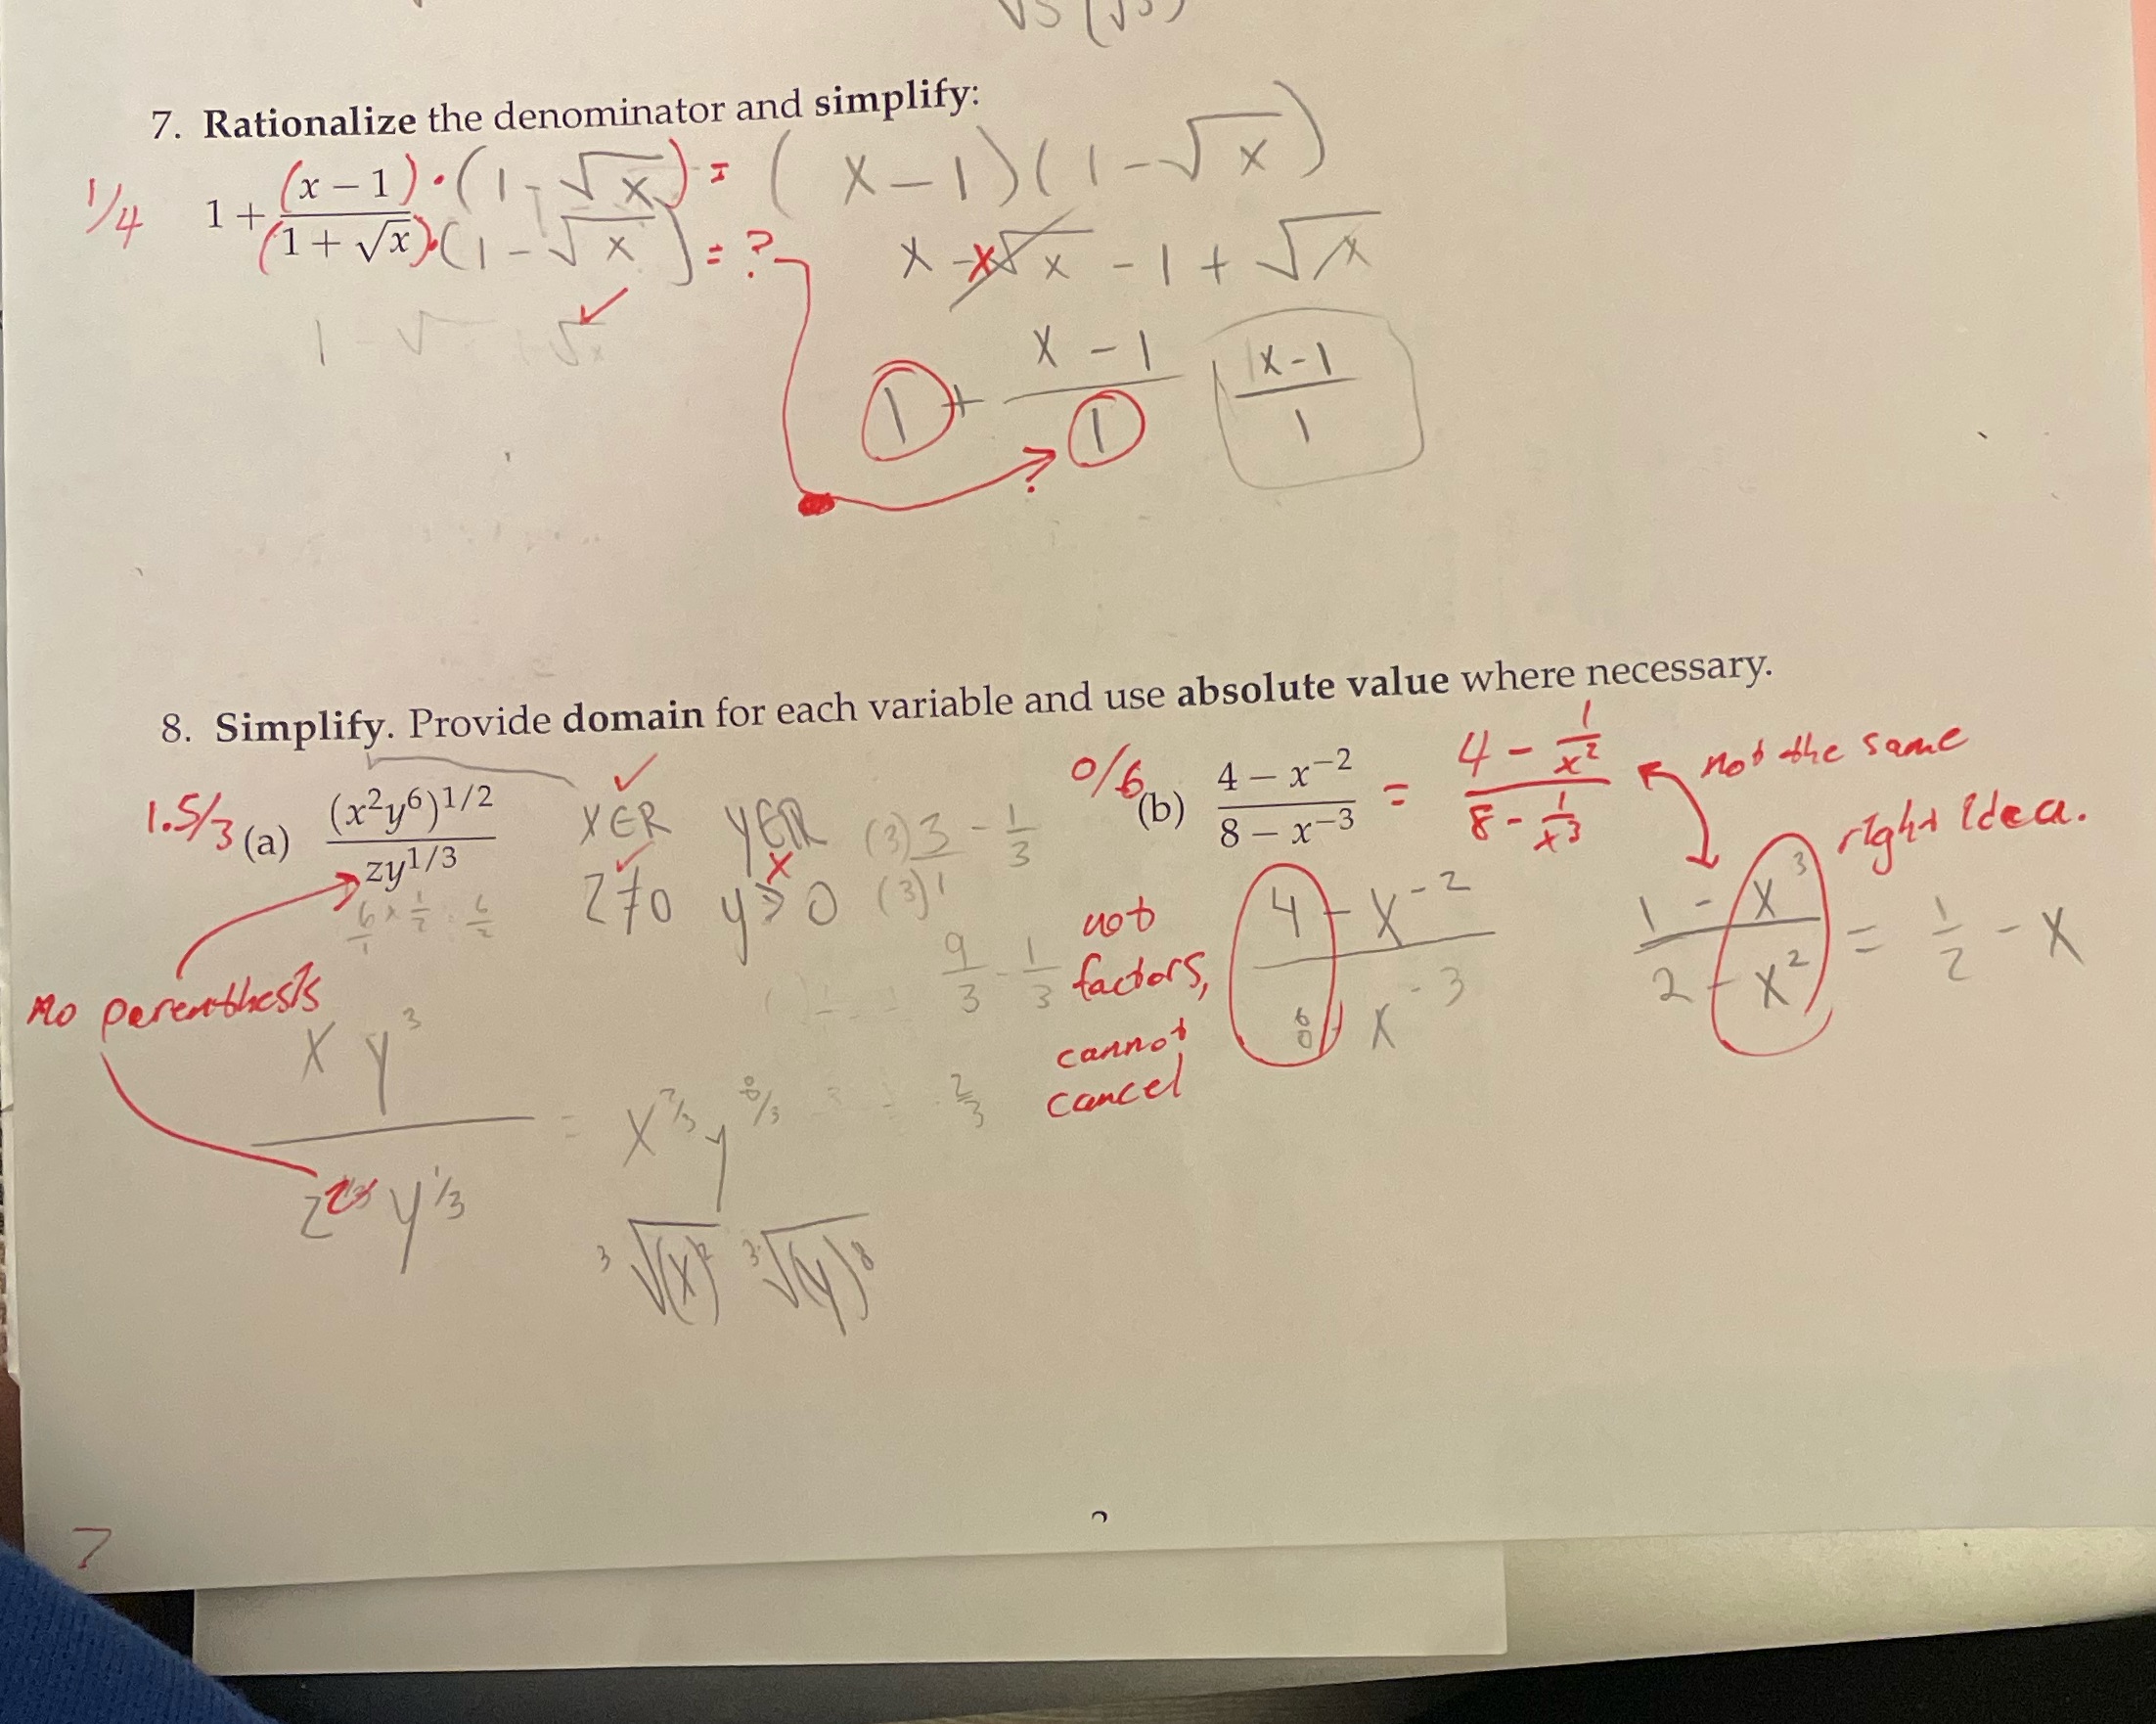 √5 (√5)
7. Rationalize the denominator and simplify:
1/4
1 + (x − 1) · (1 - √x) = (x − 1)(1 − √x)
(1 + √x) · (1 − √x) = ?
x - x√x − 1 + √x
1 − √ √x
1 + x − 1 / 1
x - 1 / 1
?
8. Simplify. Provide domain for each variable and use absolute value where necessary.
1.5/3 (a) (x²y⁶)^1/2 / zy^1/3
x∈R y∈R
z≠0 y≥0 x
(3)3 − 1/3
(3)1
6/1 × 1/2 = 6/2
9/3 − 1/3
no parenthesis
x y³ / z y^1/3 = x^2/3 y^8/3
2/3
³√(x)² ³√(y)⁸
0/6 (b) 4 − x⁻² / 8 − x⁻³ = 4 − 1/x² / 8 − 1/x³
not the same
right idea.
not factors, cannot cancel
4 − x⁻² / 8 − x⁻³
1 − x³ / 2 − x² = 1/2 − x
7